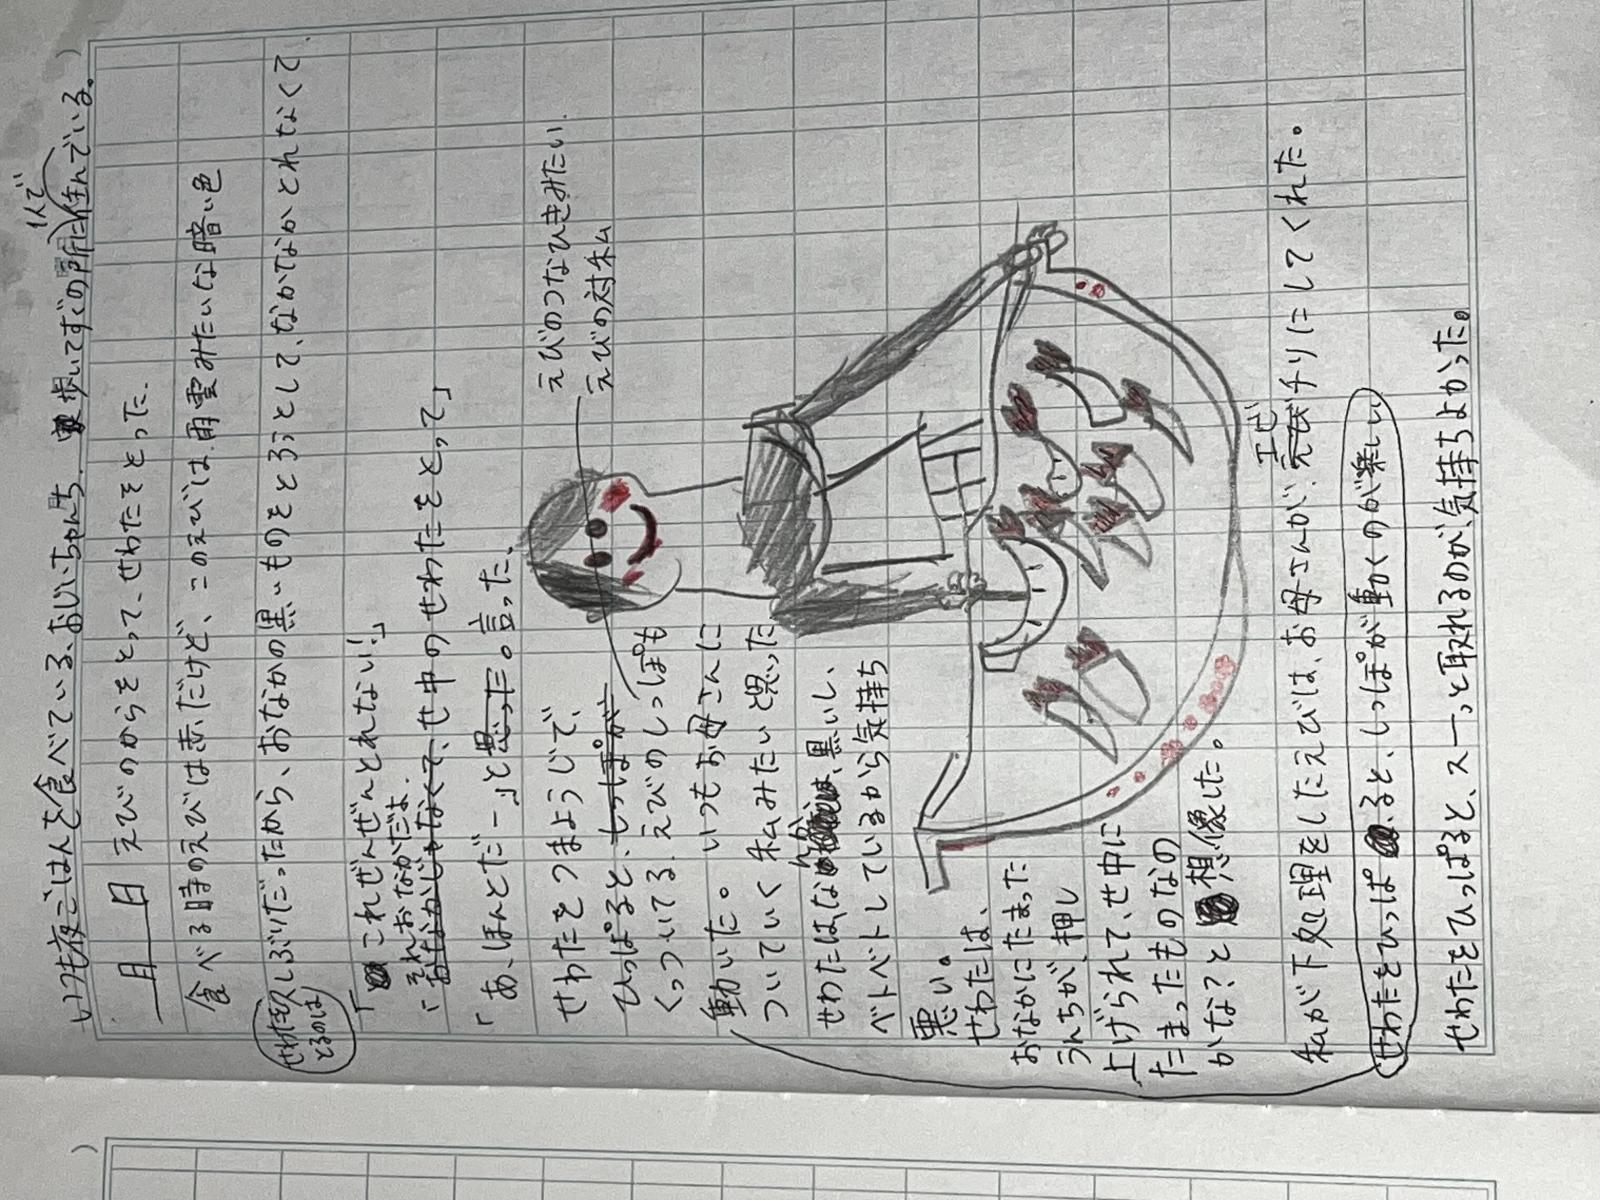 いつも夜ごはんを食べている、おじいちゃんち。歩いてすぐの所に1人で住んでいる。
月 日 えびのからをとって、せわたをとった。
食べる時のえびは赤だけど、このえびは、雨雲みたいな暗い色
せわたをとるのは久しぶりだったから、おなかの黒いものをとろうとして、なかなかとれなくて、
「これぜんぜんとれない!」
「それおなかだよ。
おなかじゃなくて、せ中のせわたをとって」
「あ、ほんとだー」と思った。言った。
せわたをつまようじで、
ひっぱると、しっぽが
くっついてる、えびのしっぽも
動いた。いつもお母さんに
ついていく私みたいと思った
せわたは、なんか、黒いし、
ベトベトしているから気持ち
悪い。
えびのつなひきみたい。
えびの対私
せわたは、
おなかにたまった
うんちが、押し
上げられて、せ中に
たまったものなの
かな?と想像した。
私が下処理をしたえびは、お母さんが、えびエビチリにしてくれた。
せわたをひっぱると、しっぽが動くのが楽しい
せわたをひっぱると、スーっと取れるのが気持ちよかった。